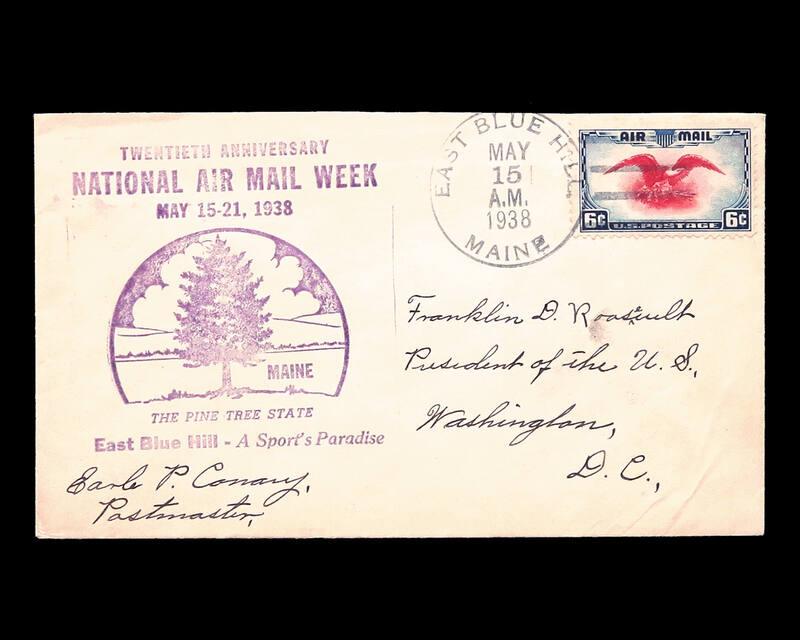 TWENTIETH ANNIVERSARY
NATIONAL AIR MAIL WEEK
MAY 15-21, 1938
MAINE
THE PINE TREE STATE
East Blue Hill - A Sport's Paradise
Earle P. Conary,
Postmaster,
EAST BLUE HILL
MAY
15
A.M.
1938
MAINE
AIR MAIL
6¢ U.S. POSTAGE 6¢
Franklin D. Roosevelt
President of the U. S.,
Washington,
D. C.,